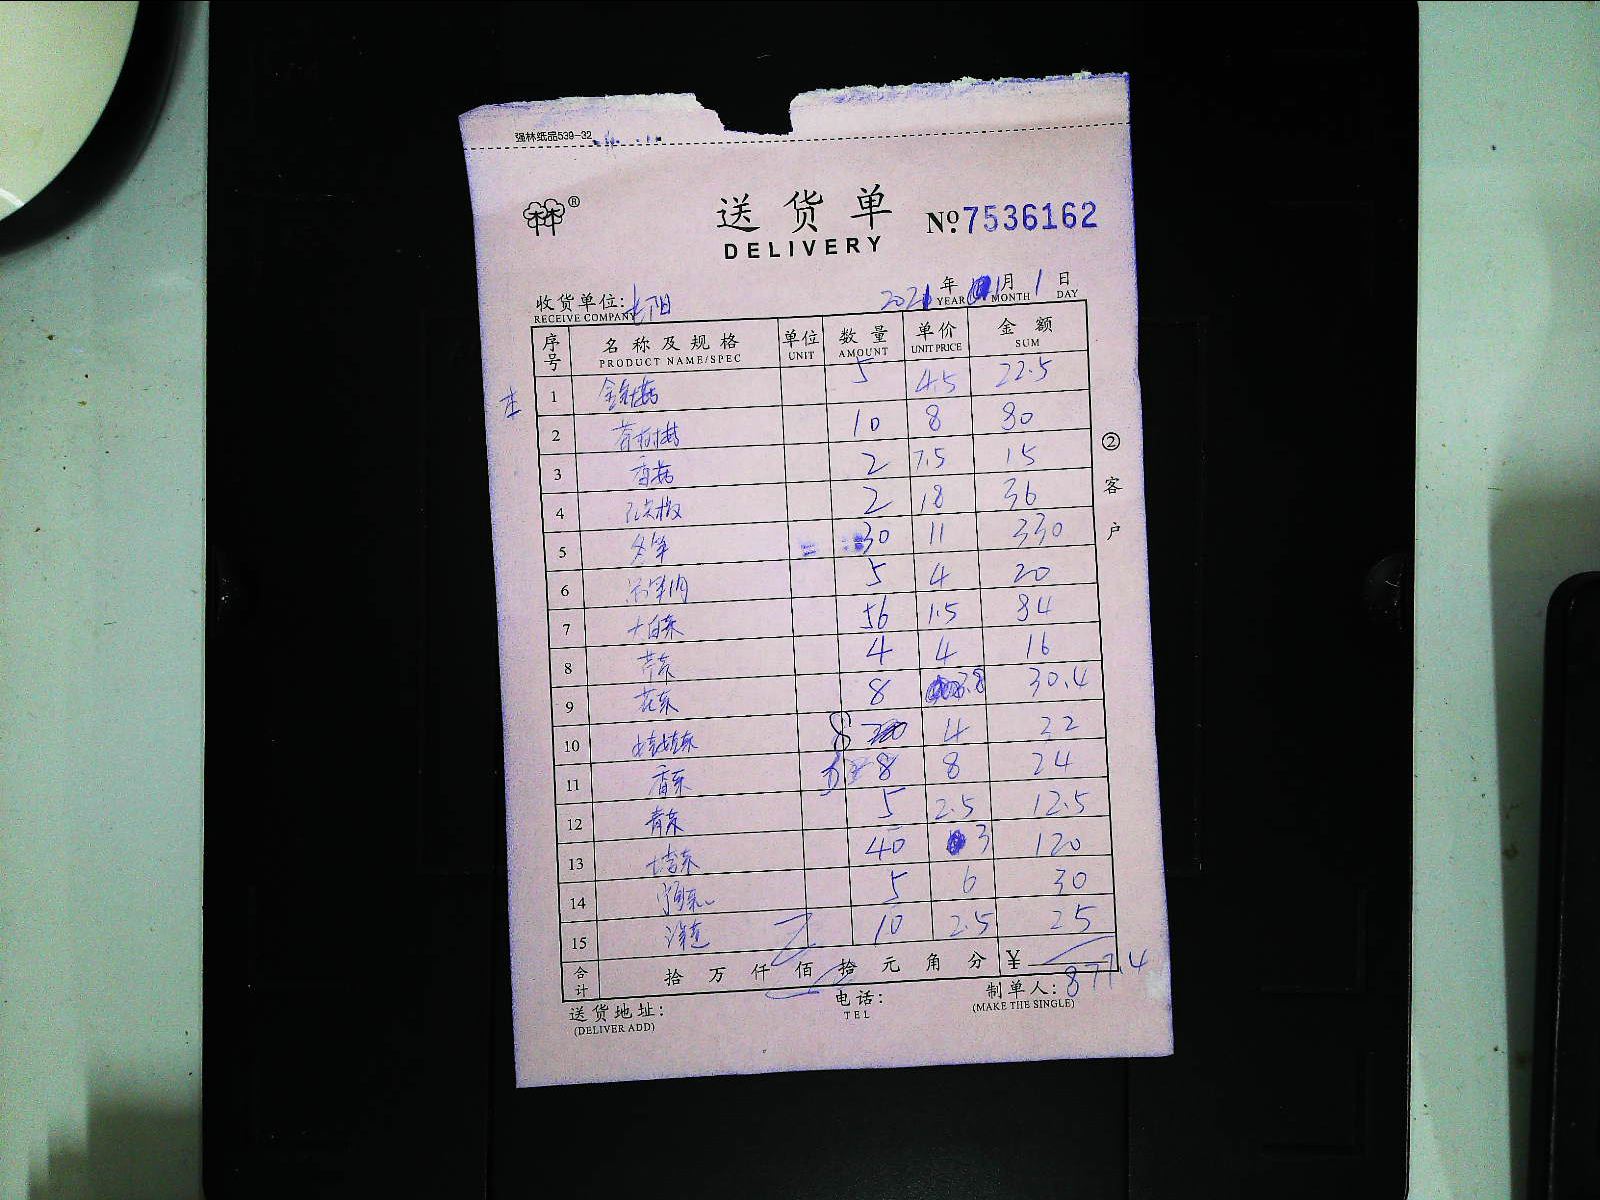 强林纸品539-32
®
送货单 №7536162
DELIVERY
收货单位: 2021 年 1 月 1 日
RECEIVE COMPANY YEAR MONTH DAY
序号 名称及规格 单位 数量 单价 金额
PRODUCT NAME/SPEC UNIT AMOUNT UNIT PRICE SUM
1 金针菇 5 4.5 22.5
2 10 8 80
3 香菇 2 7.5 15
4 2 18 36
5 冬笋 30 11 330
6 5 4 20
7 大白菜 56 1.5 84
8 芹菜 4 4 16
9 花菜 8 3.8 30.4
10 8 4 32
11 香菜 3 8 24
12 青菜 5 2.5 12.5
13 40 3 120
14 5 6 30
15 10 2.5 25
合计 拾 万 仟 佰 拾 元 角 分 ¥ 877.4
送货地址: 电话: 制单人:
(DELIVER ADD) TEL (MAKE THE SINGLE)
② 客户